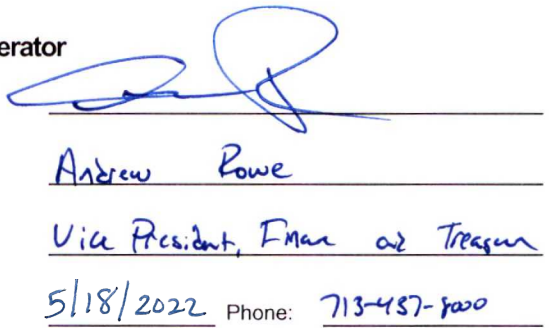 erator
Andrew Rowe
Vice President, Finan and Treasurer
5/18/2022 Phone: 713-437-8000